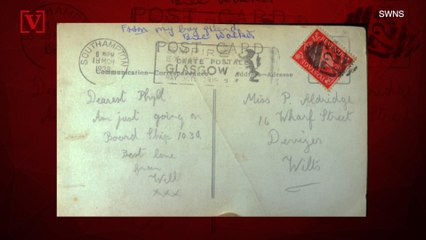 SWNS
From my boy friend
POST CARD
CARTE POSTALE
GLASGOW
SOUTHAMPTON
1938
Communication—Correspondance
Address—Adresse
Dearest Phyll
Am just going on
Board Ship 10.30.
Best love
from
Will
xxx
Miss P. Aldridge
16 Wharf Street
Devizes
Wilts